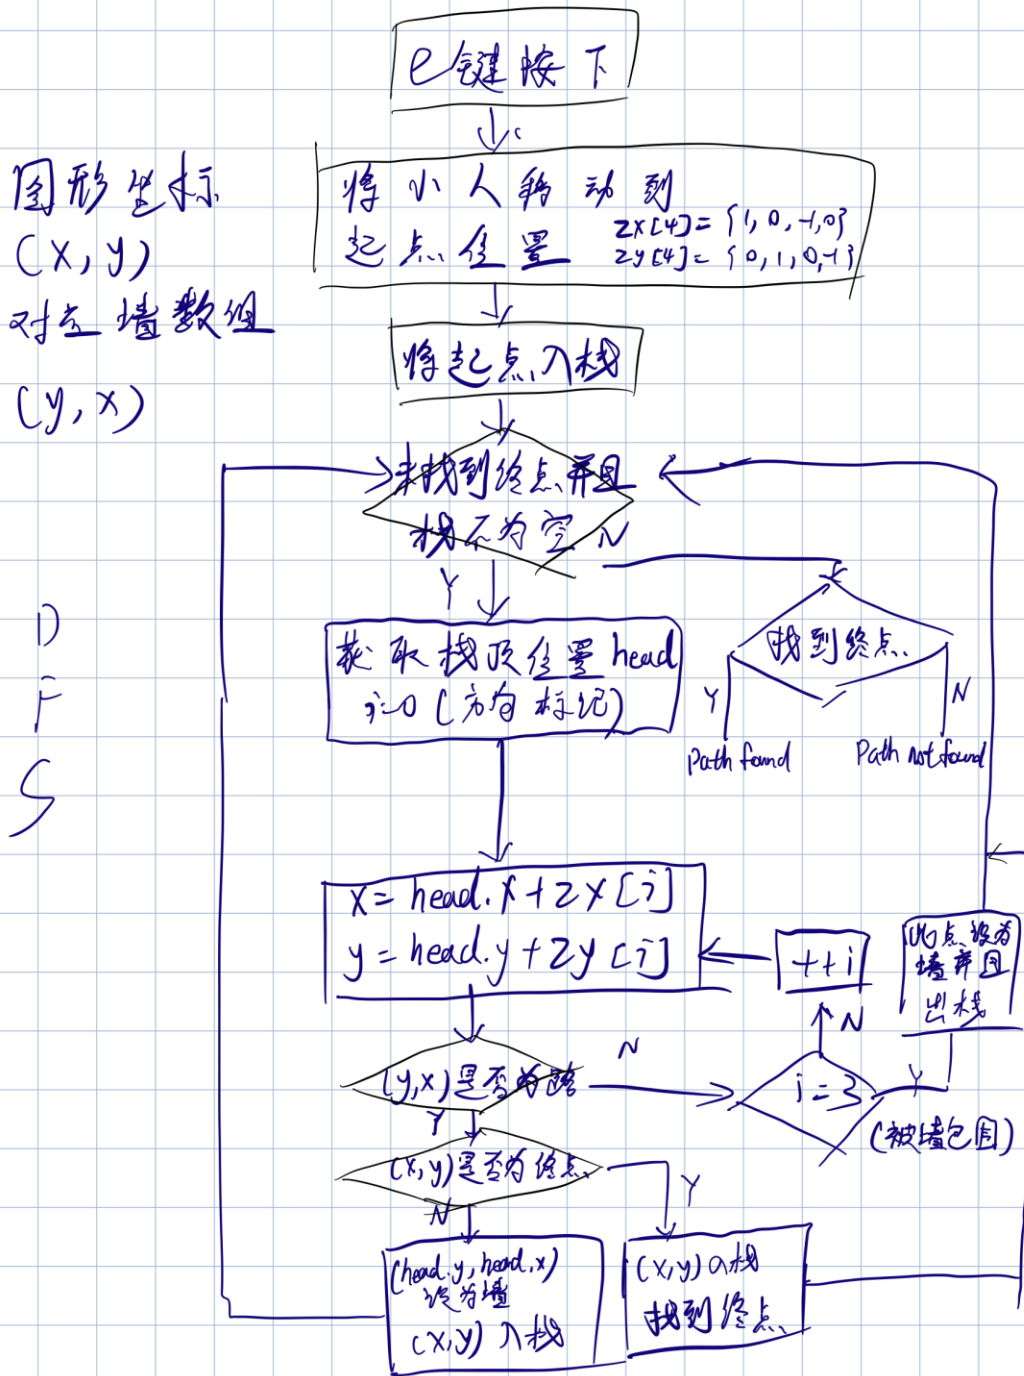 e键按下
将小人移动到
起点位置
zx[4]= {1, 0, -1, 0}
zy[4]= {0, 1, 0, -1}
图形坐标
(x, y)
对应墙数组
(y, x)
将起点入栈
未找到终点并且
栈不为空
N
Y
D
F
S
获取栈顶位置head
i=0 (方向标记)
找到终点
Y
N
Path found
Path not found
x= head.x+zx[i]
y= head.y+zy[i]
++i
此点设为
墙并且
出栈
N
(y,x)是否为路
N
i=3
Y
(被墙包围)
Y
(x,y)是否为终点
Y
N
(head.y, head.x)
设为墙
(x,y) 入栈
(x,y)入栈
找到终点